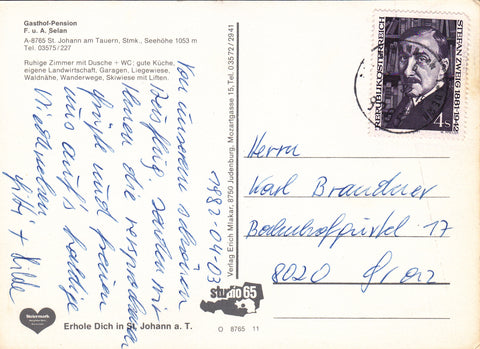 Gasthof-Pension
F. u. A. Selan
A-8765 St. Johann am Tauern, Stmk., Seehöhe 1053 m
Tel. 03575/227
Ruhige Zimmer mit Dusche + WC; gute Küche,
eigene Landwirtschaft, Garagen, Liegewiese,
Waldnähe, Wanderwege, Skiwiese mit Liften.
Von unserem schönen
Ausflug senden wir
Ihnen die versprochenen
Grüße und freuen
uns auf's baldige
Wiedersehen
Fritzi + Hilde
1982-04-03
Verlag Erich Mlakar, 8750 Judenburg, Mozartgasse 15, Tel. 03572/2941
studio 65
Steiermark
Erhole Dich in St. Johann a. T.
O 8765 11
STEFAN ZWEIG 1881-1942
REPUBLIK ÖSTERREICH
4 S
Herrn
Karl Brandner
Bahnhofgürtel 17
8020 Graz